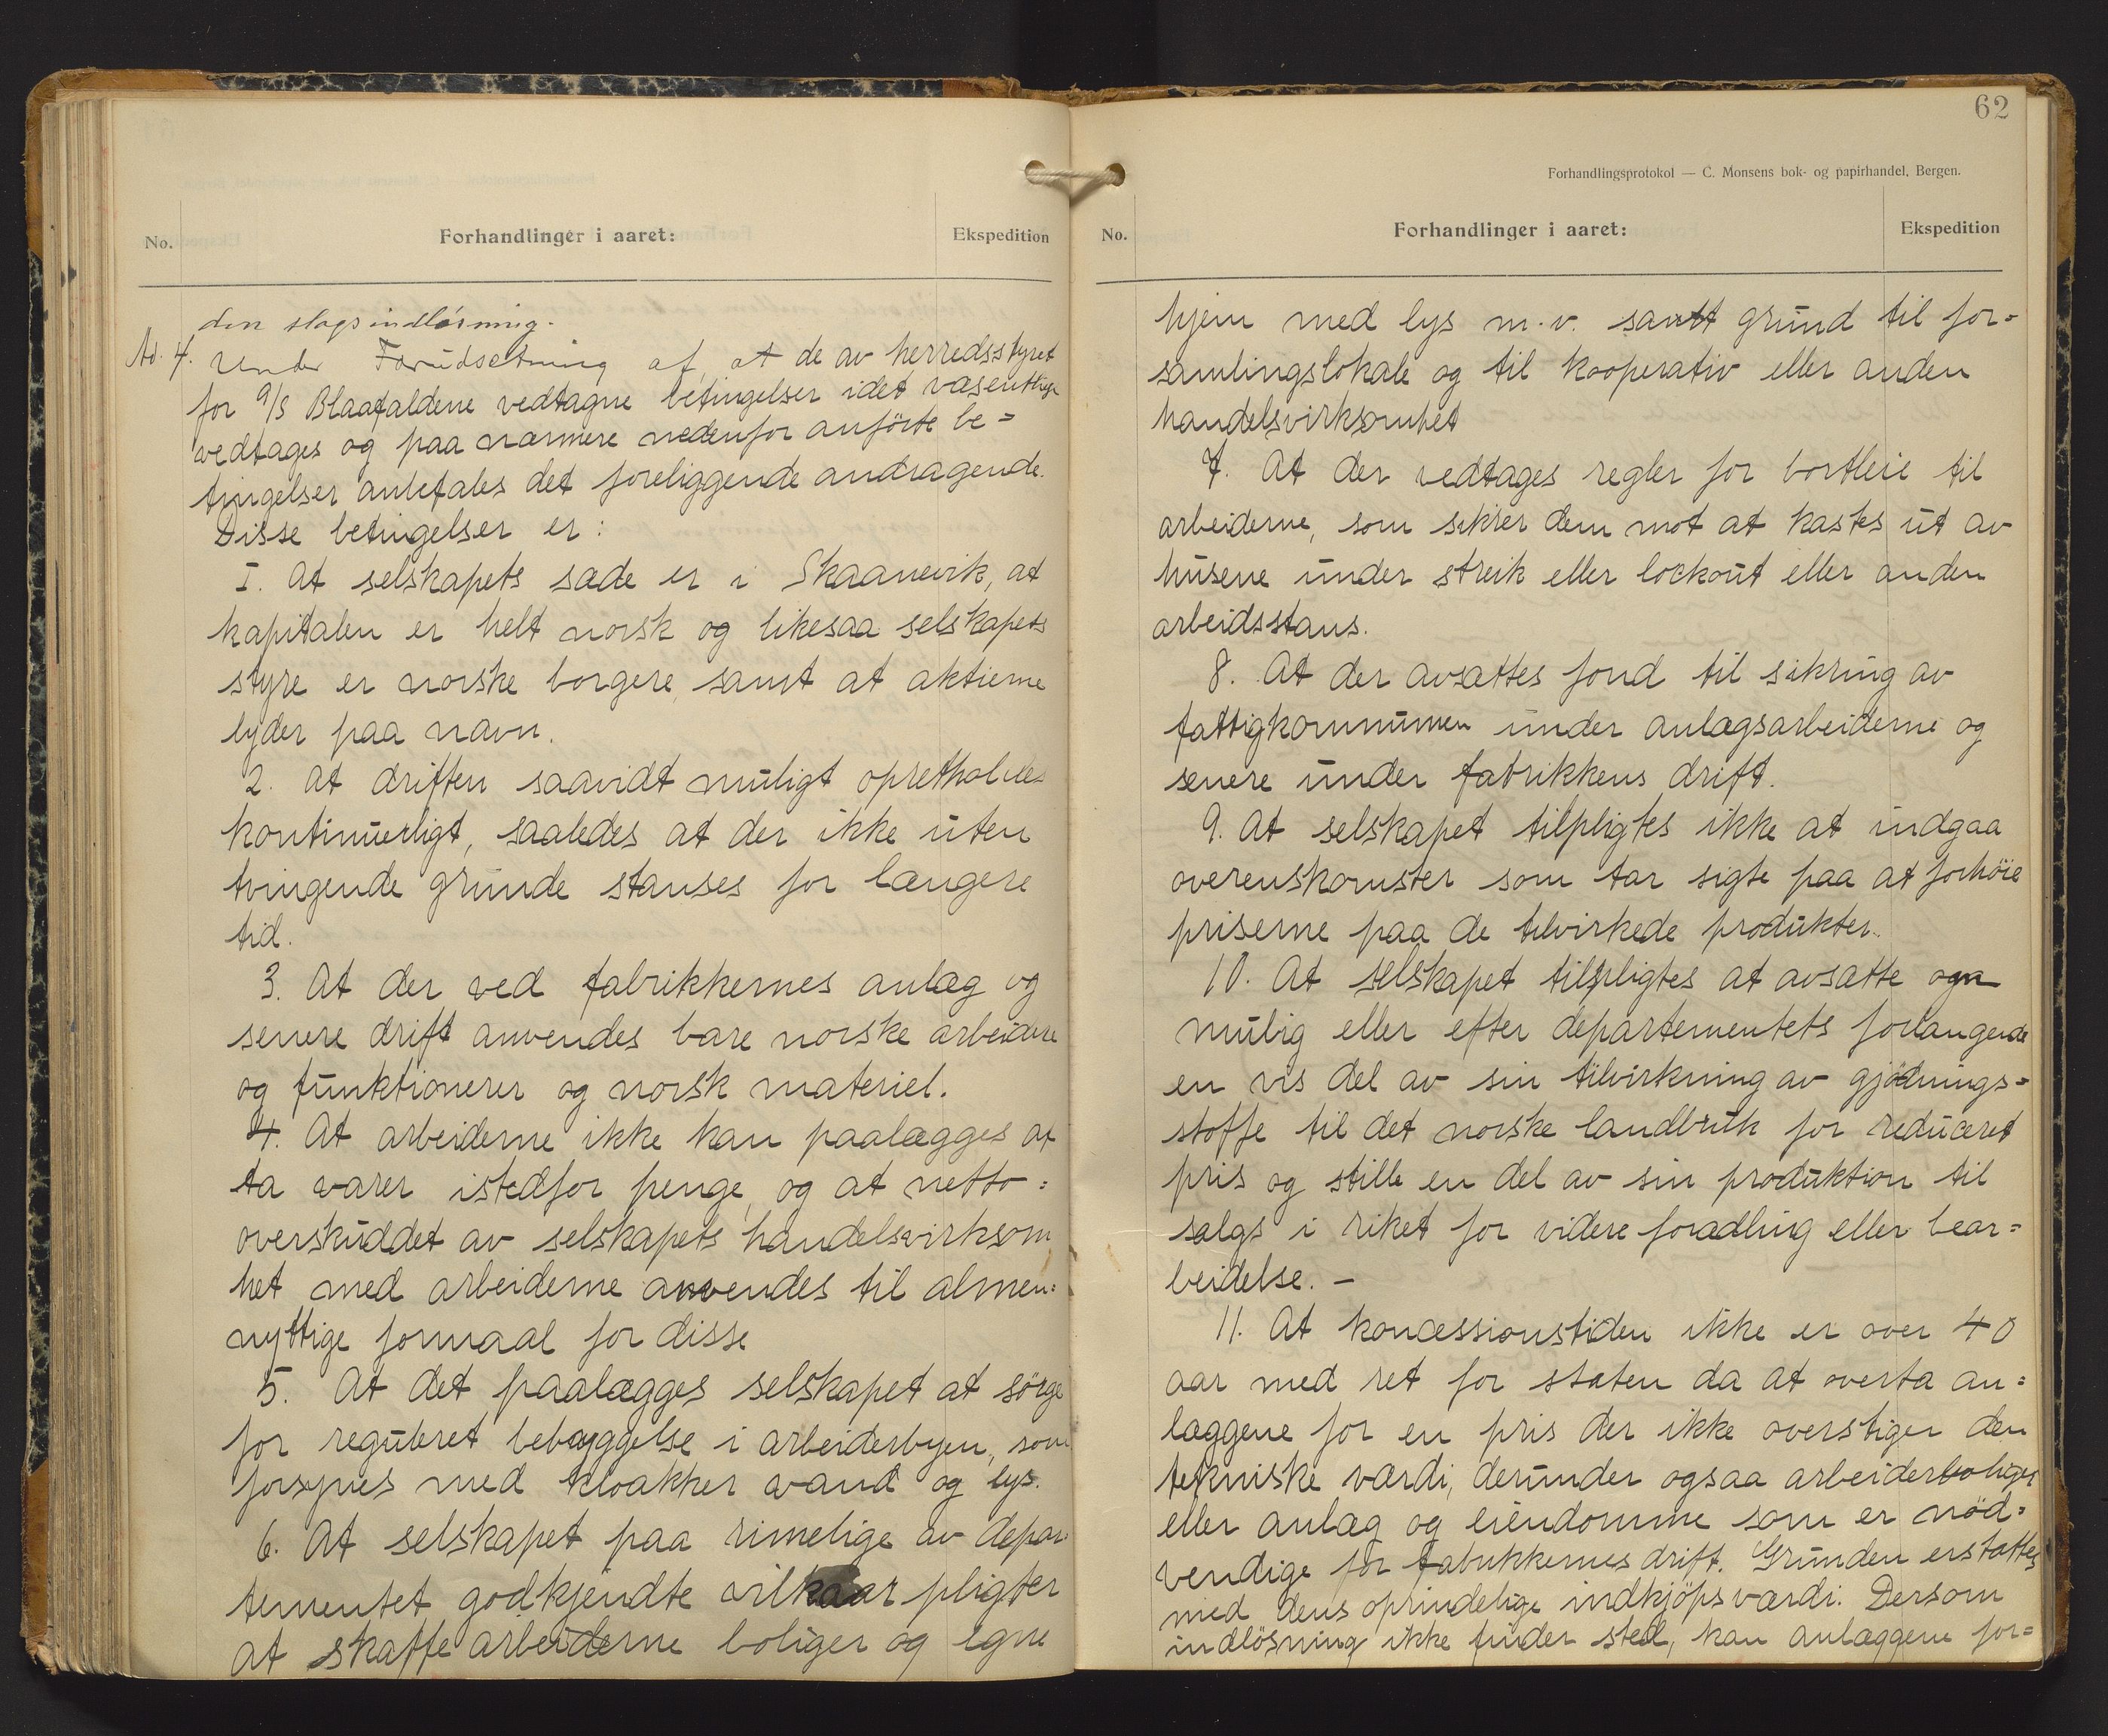 No.
Forhandlinger i aaret:
Ekspedition
den slags indløsning.
Ad. 4. Under Forudsetning af, at de av herredsstyret
for A/S Blaafaldene vedtagne betingelser idet væsentlige
vedtages og paa nærmere nedenfor anførte be=
tingelser anbefales det foreliggende andragende.
Disse betingelser er:
I. At selskapets sæde er i Skaanevik, at
kapitalen er helt norsk og likesaa selskapets
styre er norske borgere, samt at aktierne
lyder paa navn.
2. At driften saavidt muligt opretholdes
kontinuerligt, saaledes at der ikke uten
tvingende grunde stanses for længere
tid.
3. At der ved fabrikkernes anlæg og
senere drift anvendes bare norske arbeidere
og funktionerer og norsk materiel.
4. At arbeiderne ikke kan paalægges at
ta varer istedfor penge, og at netto=
overskuddet av selskapets handelsvirksom
het med arbeiderne anvendes til almen=
nyttige formaal for disse
5. At det paalægges selskapet at sörge
for reguleret bebyggelse i arbeiderbyen, som
forsynes med kloakker vand og lys.
6. At selskapet paa rimelige av depar=
tementet godkjendte vilkaar pligter
at skaffe arbeiderne boliger og egne
62
Forhandlingsprotokol — C. Monsens bok- og papirhandel, Bergen.
No.
Forhandlinger i aaret:
Ekspedition
hjem med lys m.v. samt grund til for=
samlingslokale og til kooperativ eller anden
handelsvirksomhet
7. At der vedtages regler for bortleie til
arbeiderne, som sikrer dem mot at kastes ut av
husene under streik eller lockout eller anden
arbeidsstans.
8. At der avsættes fond til sikring av
fattigkommunen under anlægsarbeiderne og
senere under fabrikkens drift.
9. At selskapet tilpligtes ikke at indgaa
overenskomster som tar sigte paa at forhöie
priserne paa de tilvirkede produkter.
10. At selskapet tilpligtes at avsætte om
mulig eller efter departementets forlangende
en vis del av sin tilvirkning av gjödnings=
stoffe til det norske landbruk for reduceret
pris og stille en del av sin produktion til
salgs i riket for videre forædling eller bear=
beidelse. —
11. At koncessionstiden ikke er over 40
aar med ret for staten da at overta an=
læggene for en pris der ikke overstiger den
tekniske værdi, derunder ogsaa arbeiderboliger
eller anlæg og eiendomme som er nöd=
vendige for fabrikkernes drift. Grunden erstattes
med dens oprindelige indkjöpsværdi. Dersom
indlösning ikke finder sted, kan anlæggene for=